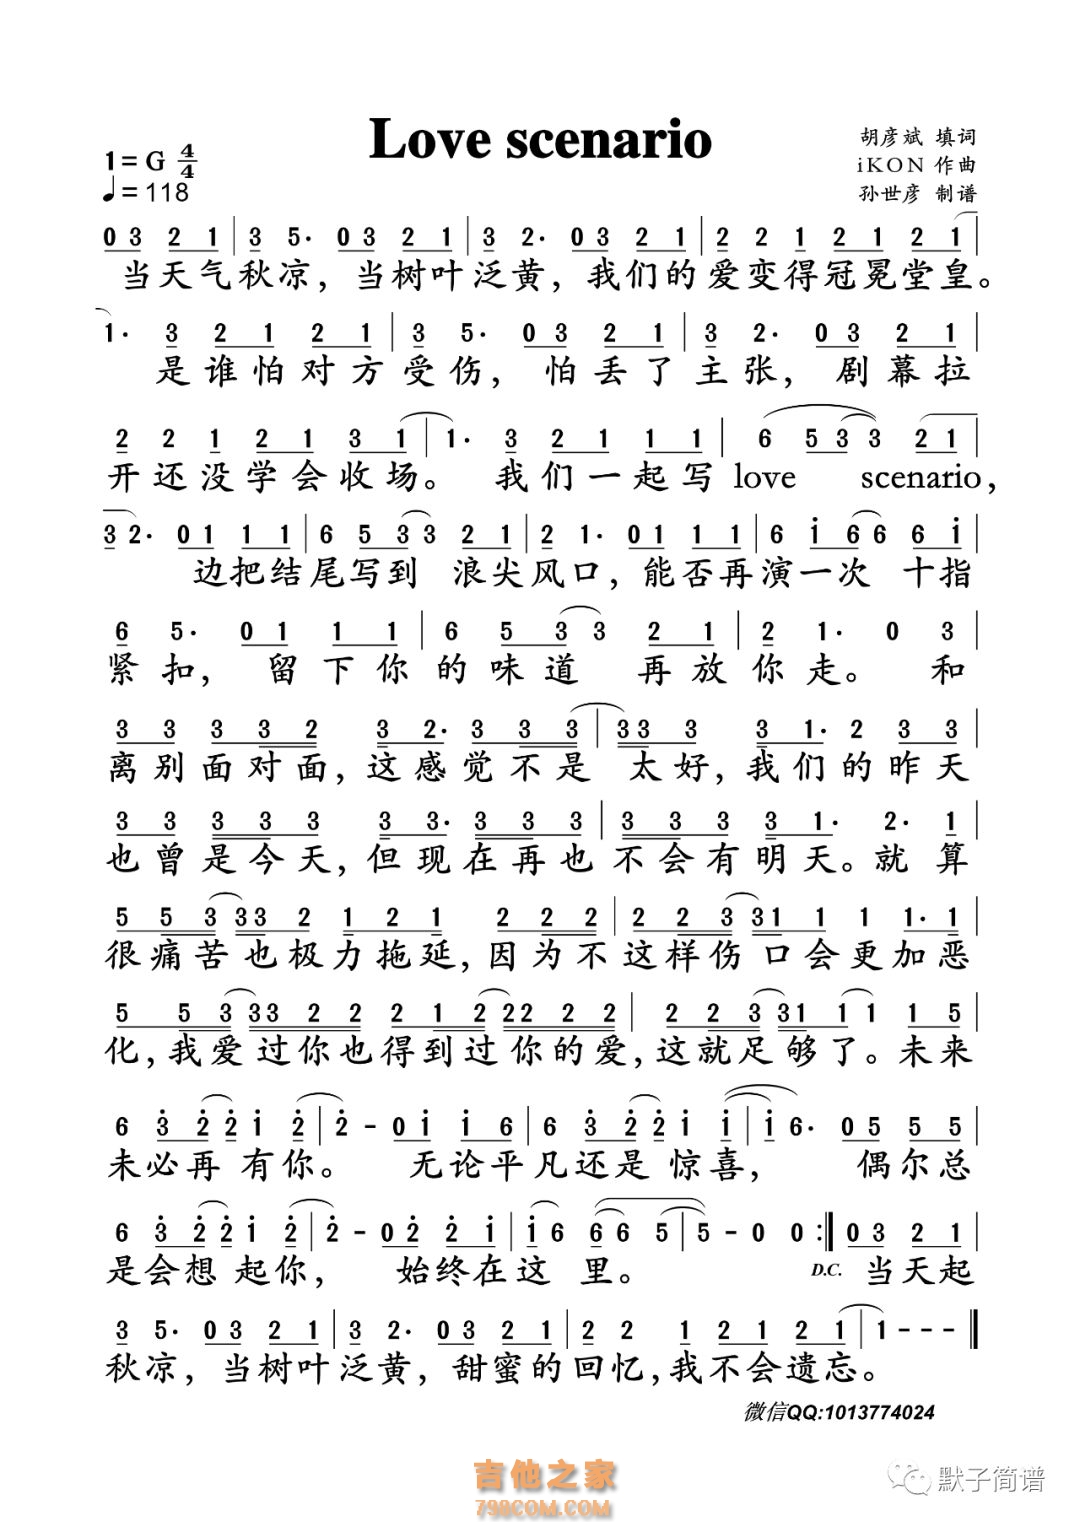 Love scenario
1=G 4/4
♩=118
胡彦斌 填词
iKON 作曲
孙世彦 制谱
0 3 2 1 | 3 5· 0 3 2 1 | 3 2· 0 3 2 1 | 2 2 1 2 1 2 1 |
当天气秋凉，当树叶泛黄，我们的爱变得冠冕堂皇。
1· 3 2 1 2 1 | 3 5· 0 3 2 1 | 3 2· 0 3 2 1
是谁怕对方受伤，怕丢了主张，剧幕拉
2 2 1 2 1 3 1 | 1· 3 2 1 1 1 | 6 5 3 3 2 1 |
开还没学会收场。 我们一起写love scenario，
3 2· 0 1 1 1 | 6 5 3 3 2 1 | 2 1· 0 1 1 1 | 6 i 6 6 6 i |
边把结尾写到 浪尖风口，能否再演一次 十指
6 5· 0 1 1 1 | 6 5 3 3 2 1 | 2 1· 0 3 |
紧扣，留下你的味道 再放你走。和
3 3 3 3 2 3 2· 3 3 3 | 3 3 3 3 1· 2 3 3 |
离别面对面，这感觉不是 太好，我们的昨天
3 3 3 3 3 3 3· 3 3 3 | 3 3 3 3 3 1· 2· 1 |
也曾是今天，但现在再也不会有明天。就算
5 5 3 3 3 2 1 2 1 2 2 2 | 2 2 3 3 1 1 1 1· 1 |
很痛苦也极力拖延，因为不这样伤 口会更加恶
5 5 3 3 3 2 2 2 1 2 2 2 2 2 | 2 2 3 3 1 1 1 1 5 |
化，我爱过你也得到过你的爱，这就足够了。未来
6 3 2 2 i 2 | 2 - 0 i i 6 | 6 3 2 2 i i | i 6· 0 5 5 5 |
未必再 有你。 无论平凡还是 惊喜， 偶尔总
6 3 2 2 i 2 | 2 - 0 2 2 i | i 6 6 6 5 | 5 - 0 0 :‖ 0 3 2 1 |
是会想 起你， 始终在这 里。 D.C. 当天起
3 5· 0 3 2 1 | 3 2· 0 3 2 1 | 2 2 1 2 1 2 1 | 1 - - - ‖
秋凉，当树叶泛黄，甜蜜的回忆，我不会遗忘。
微信QQ:1013774024
吉他之家
798COM.COM
默子简谱